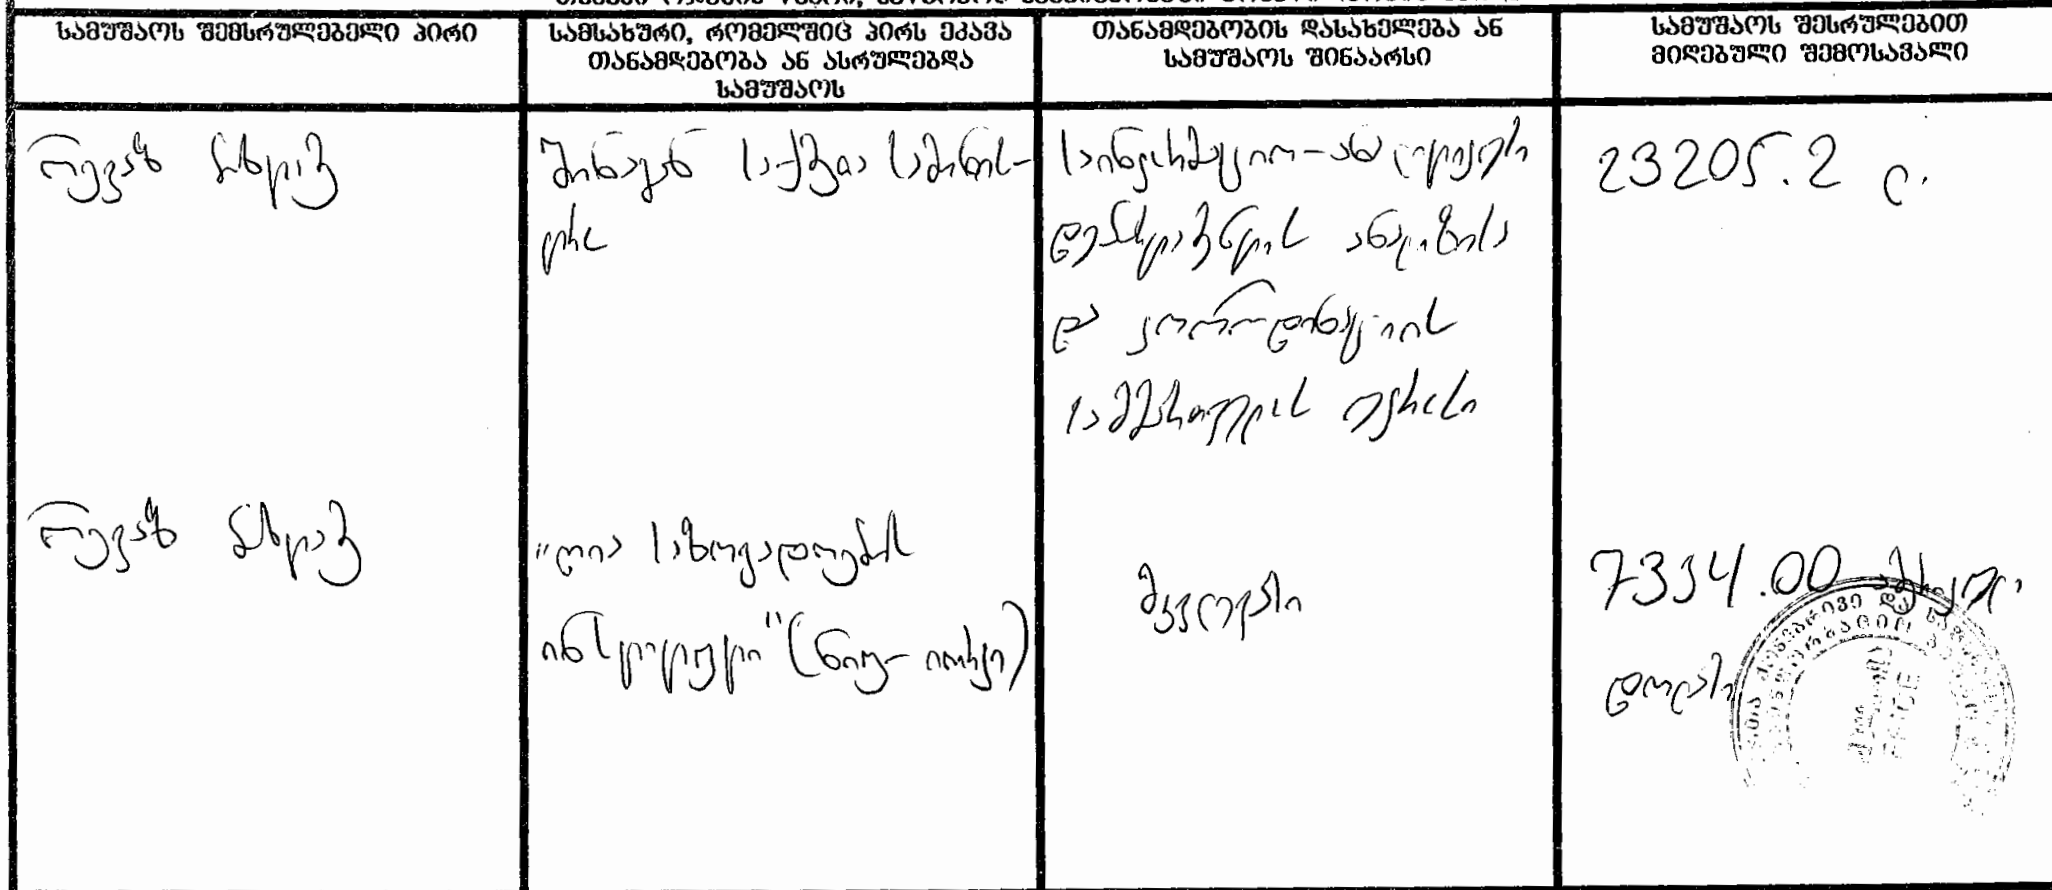 სამუშაოს შემსრულებელი პირი
სამსახური, რომელშიც პირს ეკავა
თანამდებობა ან ასრულებდა
სამუშაოს
თანამდებობის დასახელება ან
სამუშაოს შინაარსი
სამუშაოს შესრულებით
მიღებული შემოსავალი
რევაზ
შინაგან საქმეთა სამინის-
ტრო
საინფორმაციო-ანალიტიკური
დეპარტამენტის ანალიზისა
და კოორდინაციის
სამმართველოს უფროსი
23205.2 ლ.
რევაზ
"ღია საზოგადოების
ინსტიტუტი" (ნიუ-იორკი)
მკვლევარი
7334.00
დოლარი